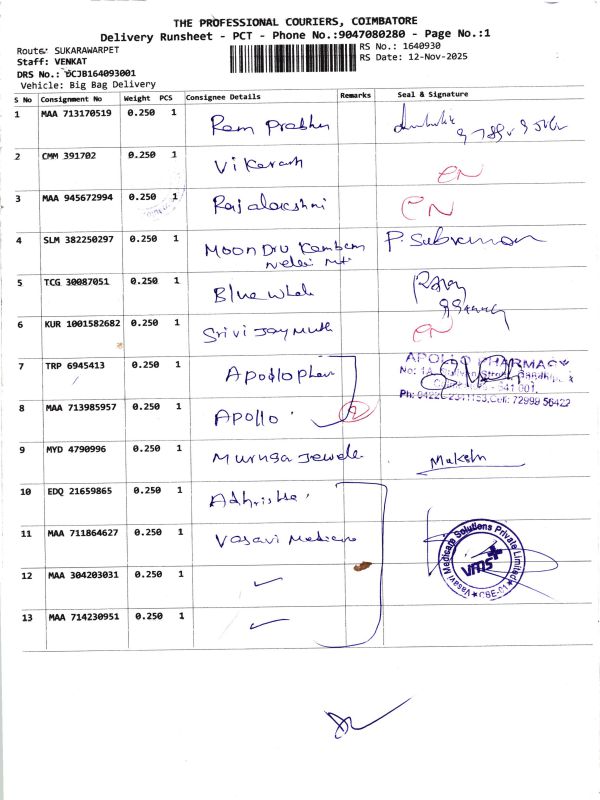 THE PROFESSIONAL COURIERS, COIMBATORE
Delivery Runsheet - PCT - Phone No.:9047080280 - Page No.:1
Route: SUKARAWARPET RS No.: 1640930
Staff: VENKAT RS Date: 12-Nov-2025
DRS No.: DCJB164093001
Vehicle: Big Bag Delivery
S No Consignment No Weight PCS Consignee Details Remarks Seal & Signature
1 MAA 713170519 0.250 1 Ram Prabhu
2 CMM 391702 0.250 1 Vikarash EN
3 MAA 945672994 0.250 1 Rajalakshmi EN
4 SLM 382250297 0.250 1 Moondru Kambam P. Subraman
5 TCG 30087051 0.250 1 Blue whale
6 KUR 1001582682 0.250 1 Srivijay EN
7 TRP 6945413 0.250 1 APOLLO PHARMACY
Ph: 0422 2341153, Cell: 72999 56422
8 MAA 713985957 0.250 1 Apollo 2
9 MYD 4790996 0.250 1 Muruga Jewels
10 EDQ 21659865 0.250 1
11 MAA 711864627 0.250 1 Vasavi Medicare Vasavi Medicare Solutions Private Limited
vms
CBE-01
12 MAA 304203031 0.250 1
13 MAA 714230951 0.250 1